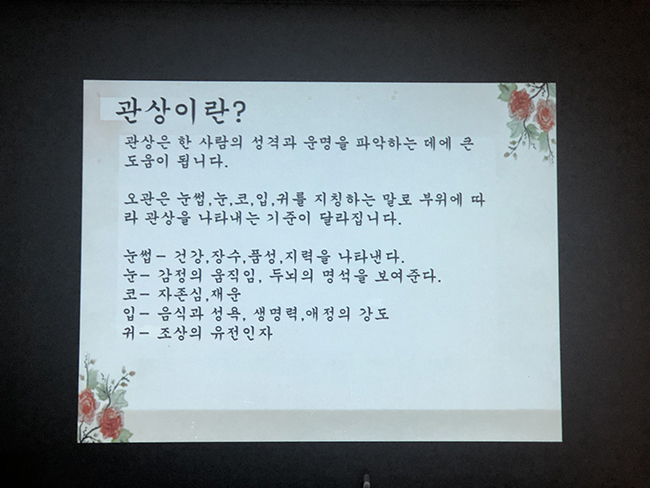 관상이란?
관상은 한 사람의 성격과 운명을 파악하는 데에 큰
도움이 됩니다.
오관은 눈썹,눈,코,입,귀를 지칭하는 말로 부위에 따
라 관상을 나타내는 기준이 달라집니다.
눈썹- 건강,장수,품성,지력을 나타낸다.
눈- 감정의 움직임, 두뇌의 명석을 보여준다.
코- 자존심,재운
입- 음식과 성욕, 생명력,애정의 강도
귀- 조상의 유전인자